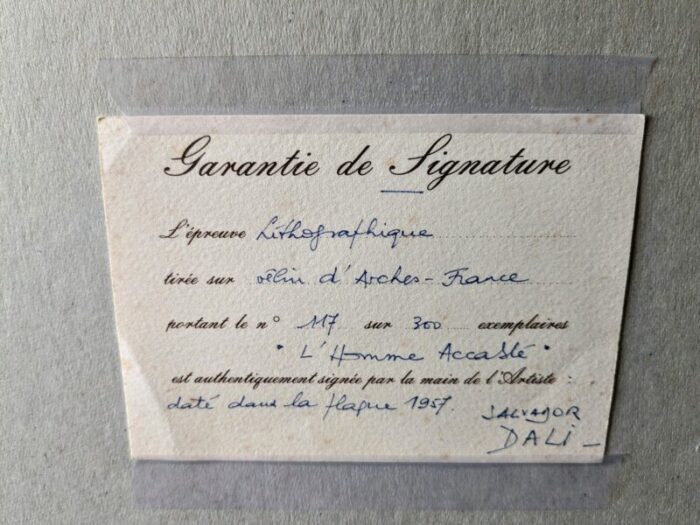 Garantie de Signature
L'épreuve Lithographique
tirée sur vélin d'Arches-France
portant le n° 117 sur 300 exemplaires
"L'Homme Accablé"
est authentiquement signée par la main de l'Artiste :
daté dans la plaque 1957.
SALVADOR
DALI